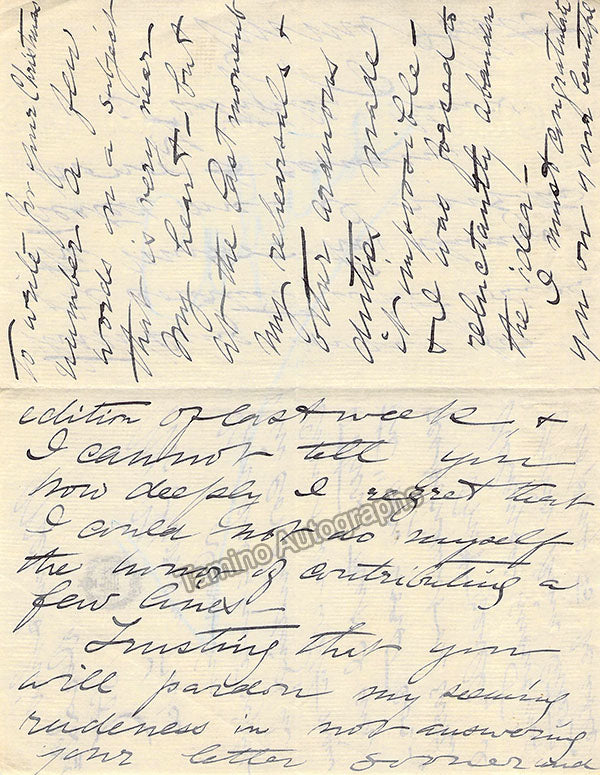 To write for your Christmas
number a few
words on a subject
that is very near
my heart – but
at the last moment
my rehearsals &
other arduous
duties made
it impossible –
& I was forced to
reluctantly abandon
the idea –
I must congratulate
you on your beautiful
edition of last week, &
I cannot tell you
how deeply I regret that
I could not do myself
the honor of contributing a
few lines –
Trusting that you
will pardon my seeming
rudeness in not answering
your letter sooner and
Tamino Autographs